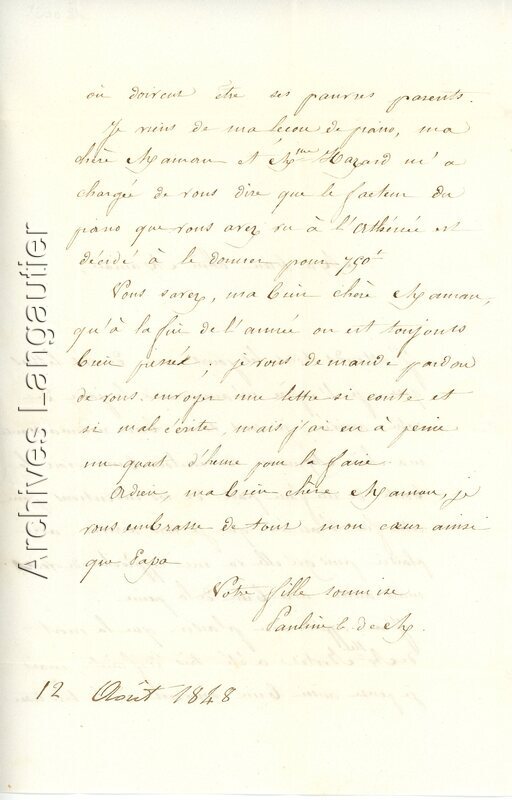 où doivent être ses pauvres parents.
Je viens de ma leçon de piano, ma
chère Maman et Mme Hazard m'a
chargée de vous dire que le facteur du
piano que vous avez vu à l'Athénée est
décidé à le donner pour 750f
Vous savez, ma bien chère Maman,
qu'à la fin de l'année on est toujours
bien pressé, je vous demande pardon
de vous envoyer une lettre si courte et
si mal écrite, mais j'ai eu à peine
un quart d'heure pour la faire.
Adieu, ma bien chère Maman, je
vous embrasse de tout mon cœur ainsi
que Papa
Votre fille soumise
Pauline C. de M.
12 Août 1848
Archives Langautier